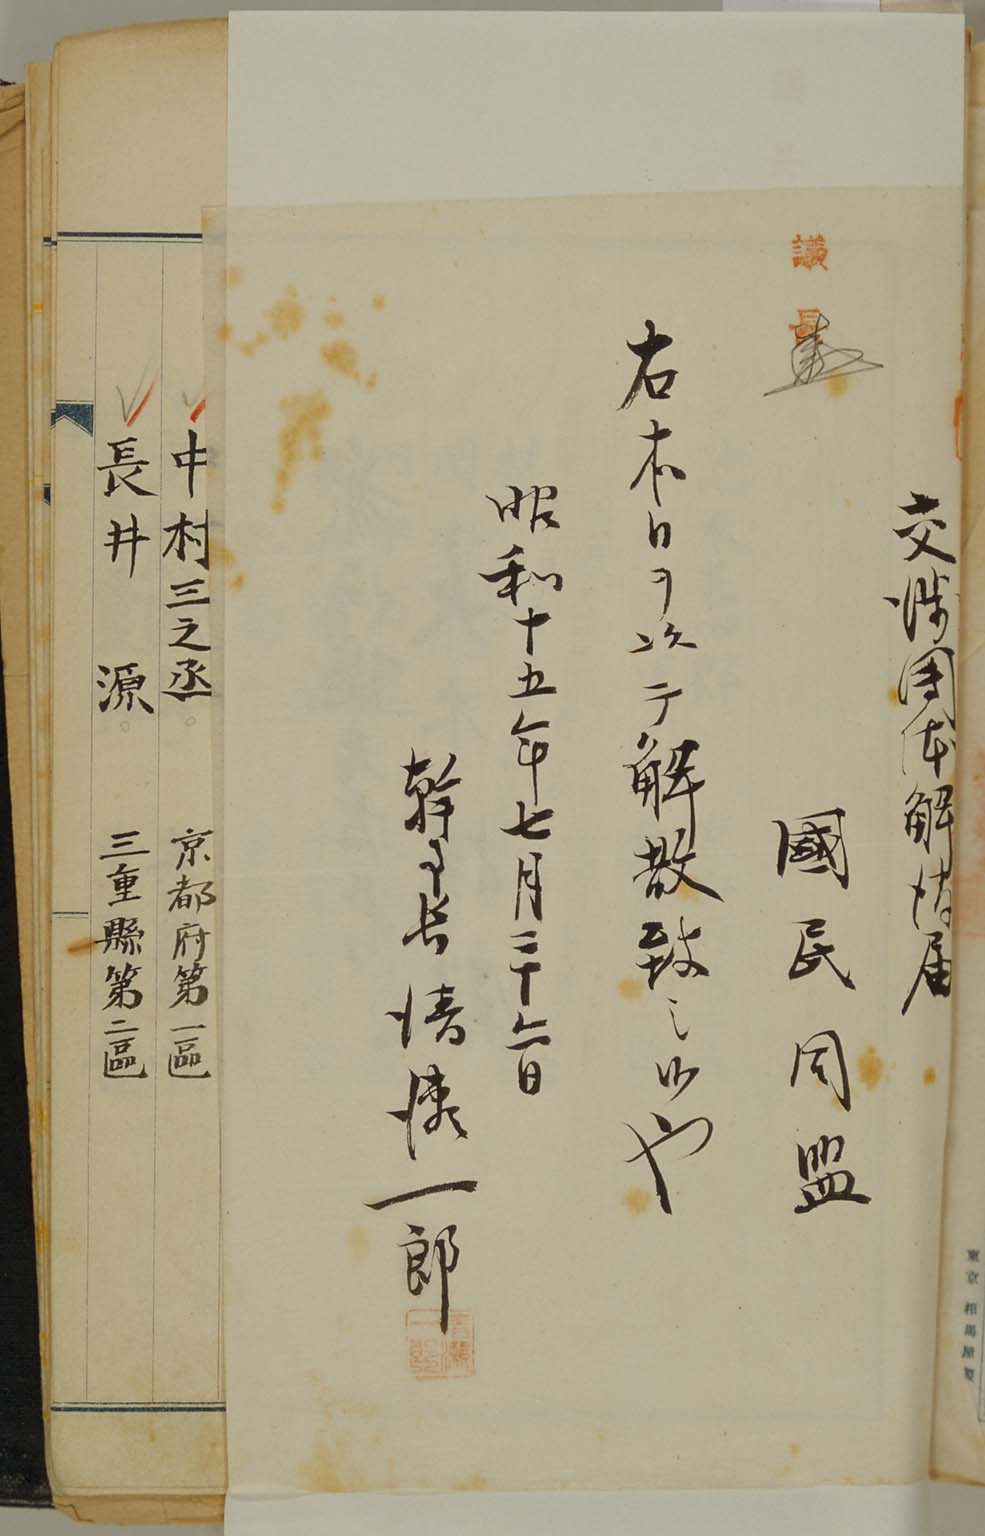 東京 相馬屋製
交渉團体解消届
議長
國民同盟
右本日ヲ以テ解散致シ候也
昭和十五年七月二十六日
幹事長 清瀬一郎
清瀬一郎
中村三之丞 京都府第一區
長井 源 三重縣第二區